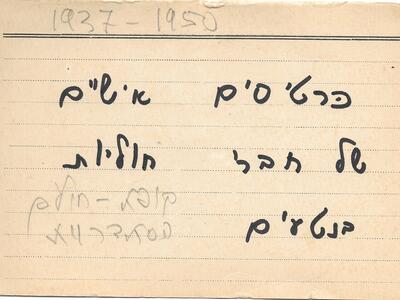 1937 - 1950
כרטיסים אישיים
של חברי חוליות
בנטעים
קופת-חולים
הסתדרות